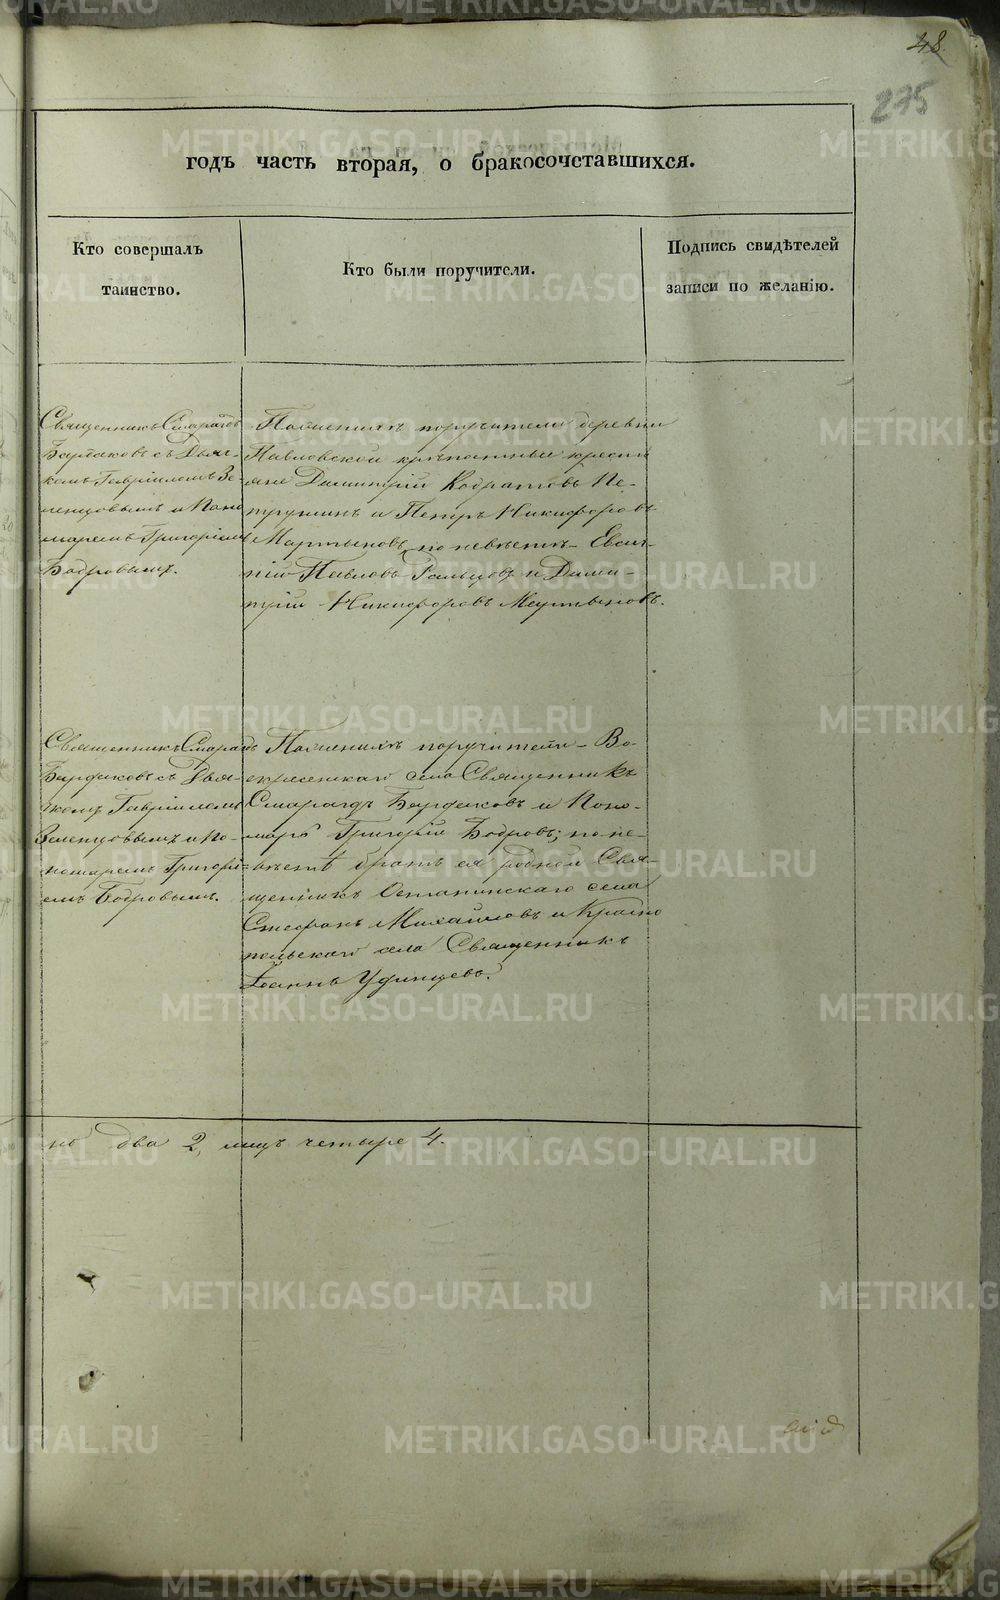 48
275
годъ часть вторая, о бракосочетавшихся.
Кто совершалъ
таинство.
Кто были поручители.
Подпись свидѣтелей
записи по желанію.
Священникъ Смарагдъ
Бардаковъ съ Дьяч-
комъ Гавріиломъ Зе-
ленцовымъ и Поно
маремъ Григоріемъ
Бобровымъ.
По женихѣ поручители деревни
Павловской крестья
яне Димитрій Кодратовъ Пе-
трунинъ и Петръ Никифоровъ
Мартыновъ, по невѣстѣ Евсиг-
ній Павловъ и Дими-
трій Никифоровъ Мартыновъ.
Священникъ Смарагдъ
Бардаковъ съ Дья-
чкомъ Гавріиломъ
Зеленцовымъ и По-
номаремъ Григорі-
емъ Бобровымъ.
По женихѣ поручители Во-
скресенскаго села Священникъ
Смарагдъ Бардаковъ и Поно-
марь Григорій Бобровъ; по не-
вѣстѣ братъ ея родной Свя-
щенникъ Останинскаго села
Стефанъ Михайловъ и Красно
польскаго села Священникъ
Іоаннъ Удинцевъ.
но два 2, лицъ четыре 4.
METRIKI.GASO-URAL.RU